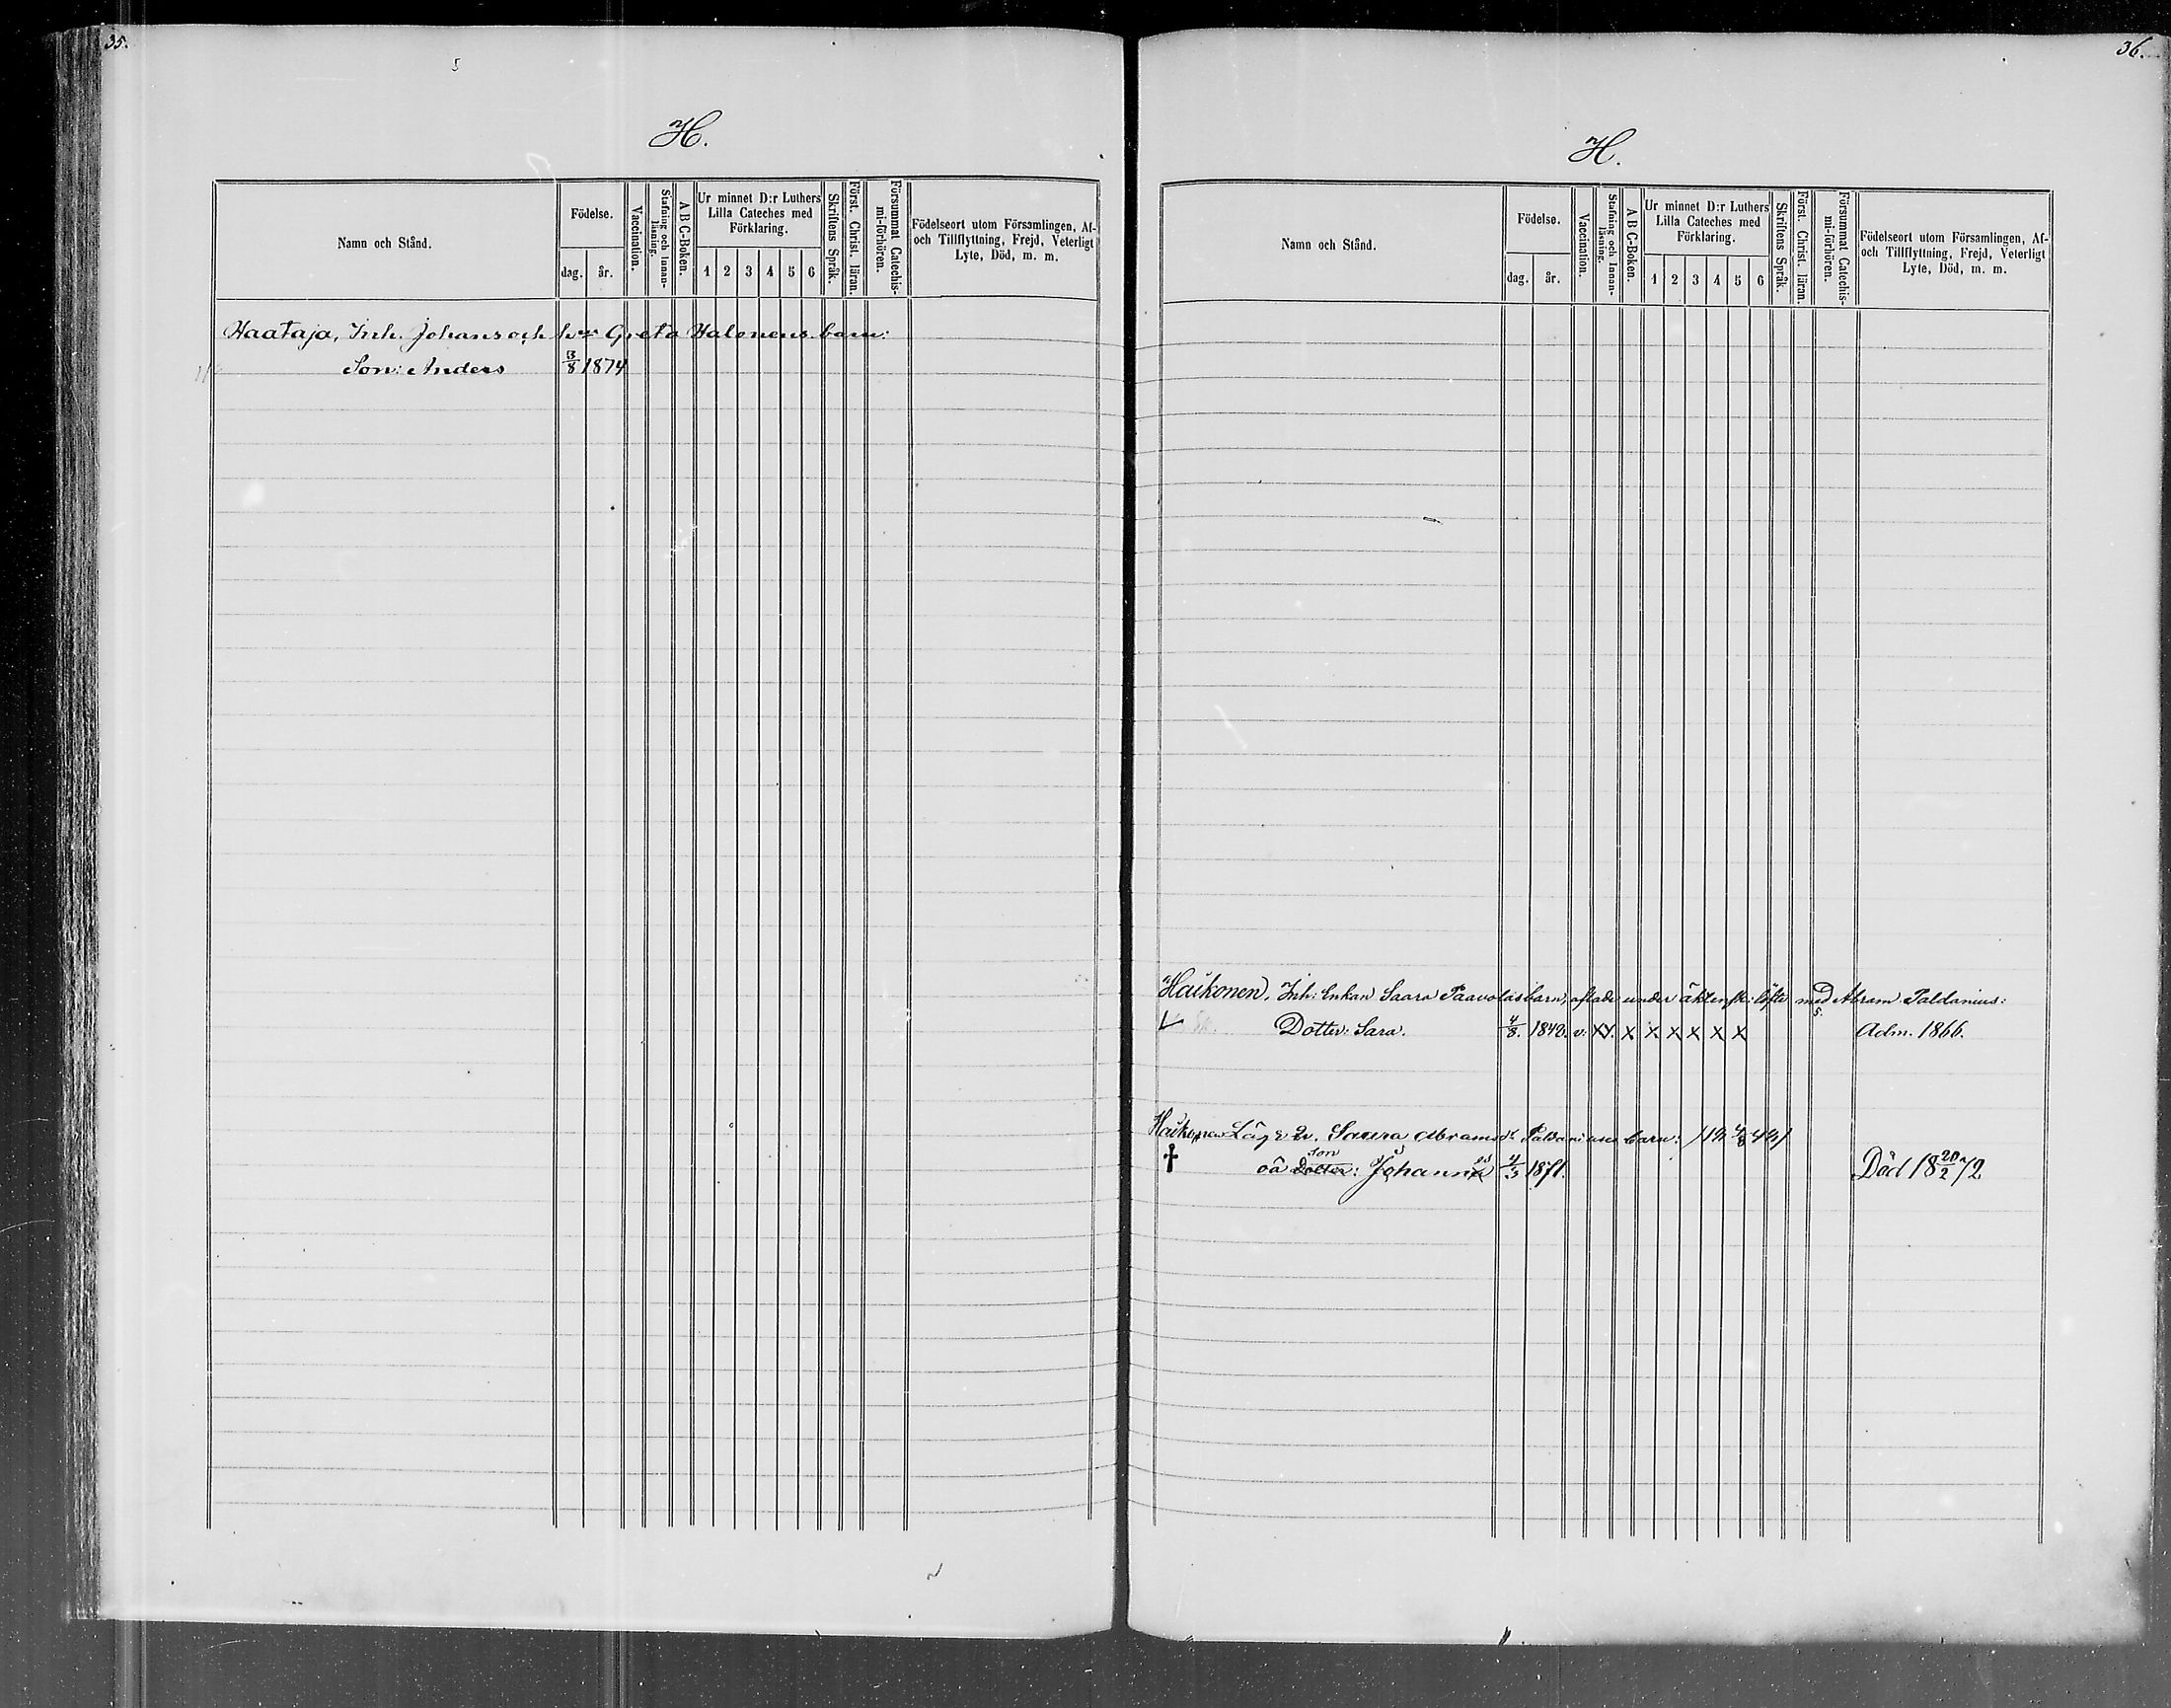 35.
H.
Namn och Stånd.
Födelse.
dag.
år.
Vaccination.
Stafning och Innan-läsning.
A B C-Boken.
Ur minnet D:r Luthers
Lilla Cateches med
Förklaring.
1 2 3 4 5 6
Skriftens Språk.
Först. Christ. läran.
Försummat Catechis-mi-förhören.
Födelseort utom Församlingen, Af-
och Tillflyttning, Frejd, Veterligt
Lyte, Död, m. m.
Haataja, Inh. Johans och h:us Greta Halonens barn:
Son: Anders 13/8 1874
36.
H.
Namn och Stånd.
Födelse.
dag.
år.
Vaccination.
Stafning och Innan-läsning.
A B C-Boken.
Ur minnet D:r Luthers
Lilla Cateches med
Förklaring.
1 2 3 4 5 6
Skriftens Språk.
Först. Christ. läran.
Försummat Catechis-mi-förhören.
Födelseort utom Församlingen, Af-
och Tillflyttning, Frejd, Veterligt
Lyte, Död, m. m.
Haikonen, Inh: Enkan Saara Paavolas barn, aflade under äktensk: löfte med Abram Paldanius:
Dotter: Sara. 4/8. 1849. v. XX. X X X X X X Adm. 1866.
Haikonen Lösg: Saara Abramsd: Paldanius barn:
oä Dotter: Son Johannes 4/3 1871. Död 18 20/2 72